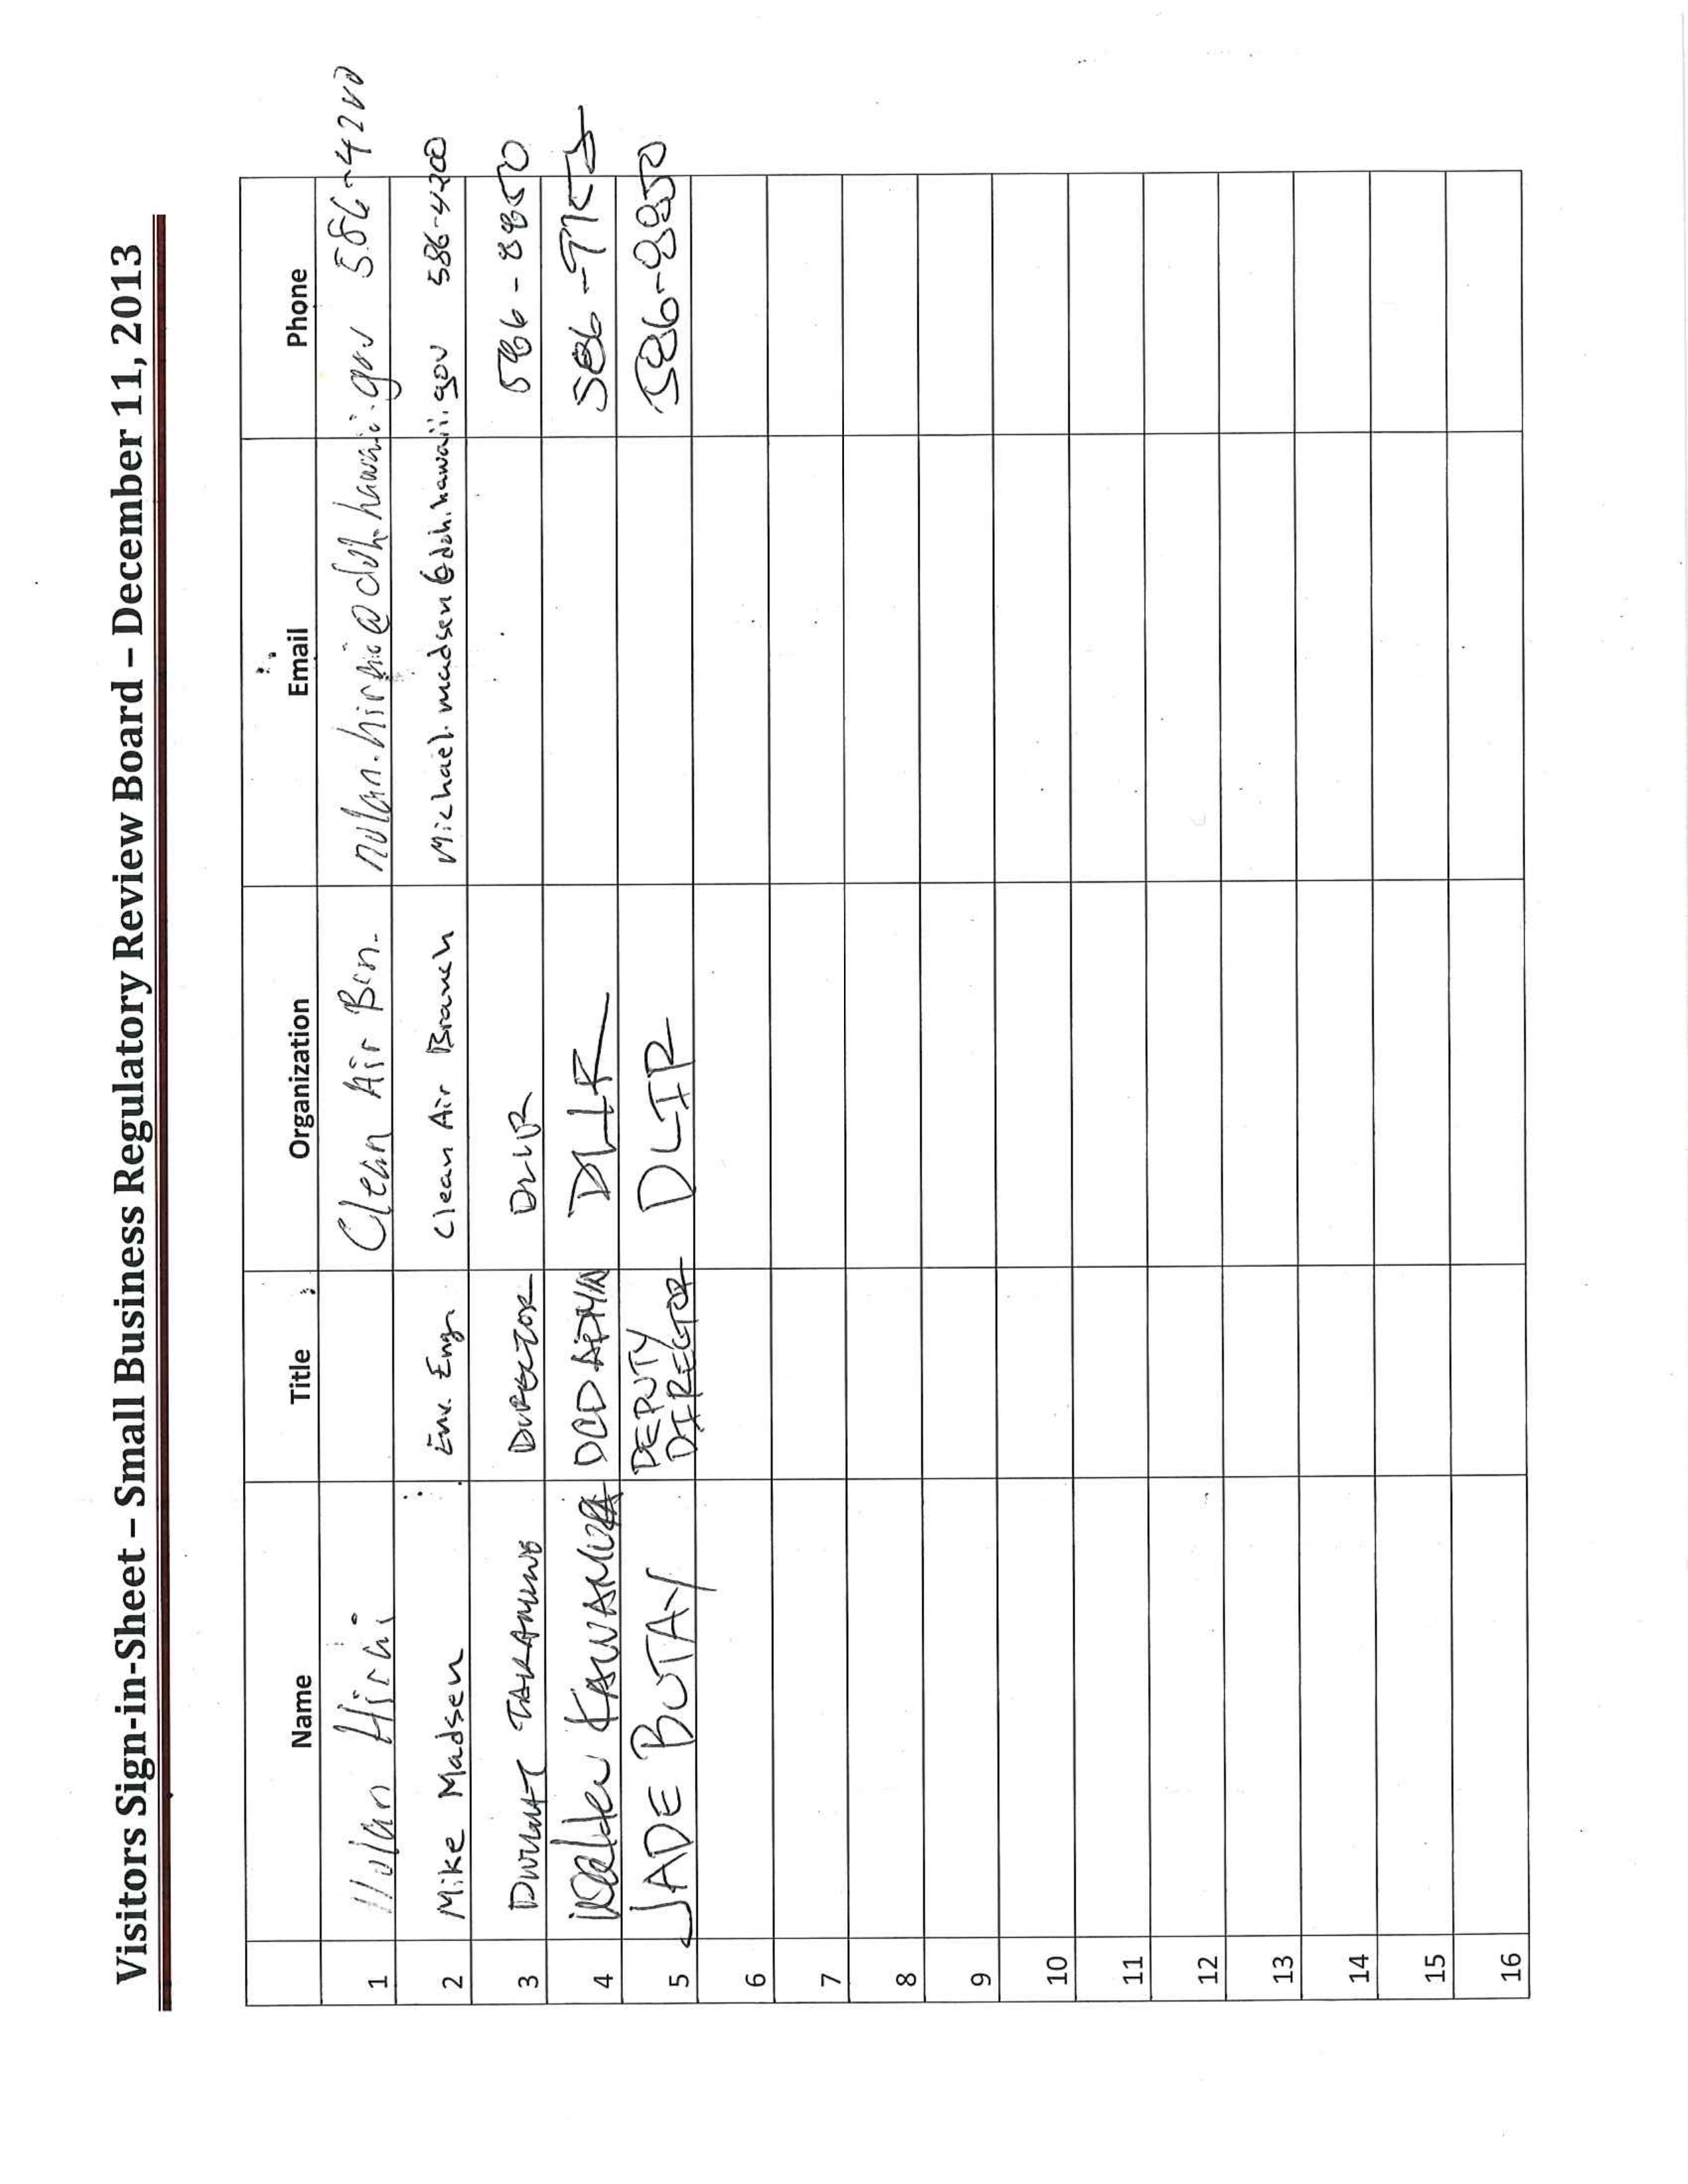 Visitors Sign-in-Sheet – Small Business Regulatory Review Board – December 11, 2013
Name Title Organization Email Phone
1 Nolan Hirai Clean Air Brn. nolan.hirai@doh.hawaii.gov 586-4200
2 Mike Madsen Env. Eng. Clean Air Branch Michael.madsen@doh.hawaii.gov 586-4200
3 DWIGHT TAKAMINE DIRECTOR DLIR 586-8850
4 Walter KAWAMURA DCD ADMIN DLIR
5 JADE BUTAY DEPUTY DIRECTOR DLIR 586-8850
6
7
8
9
10
11
12
13
14
15
16